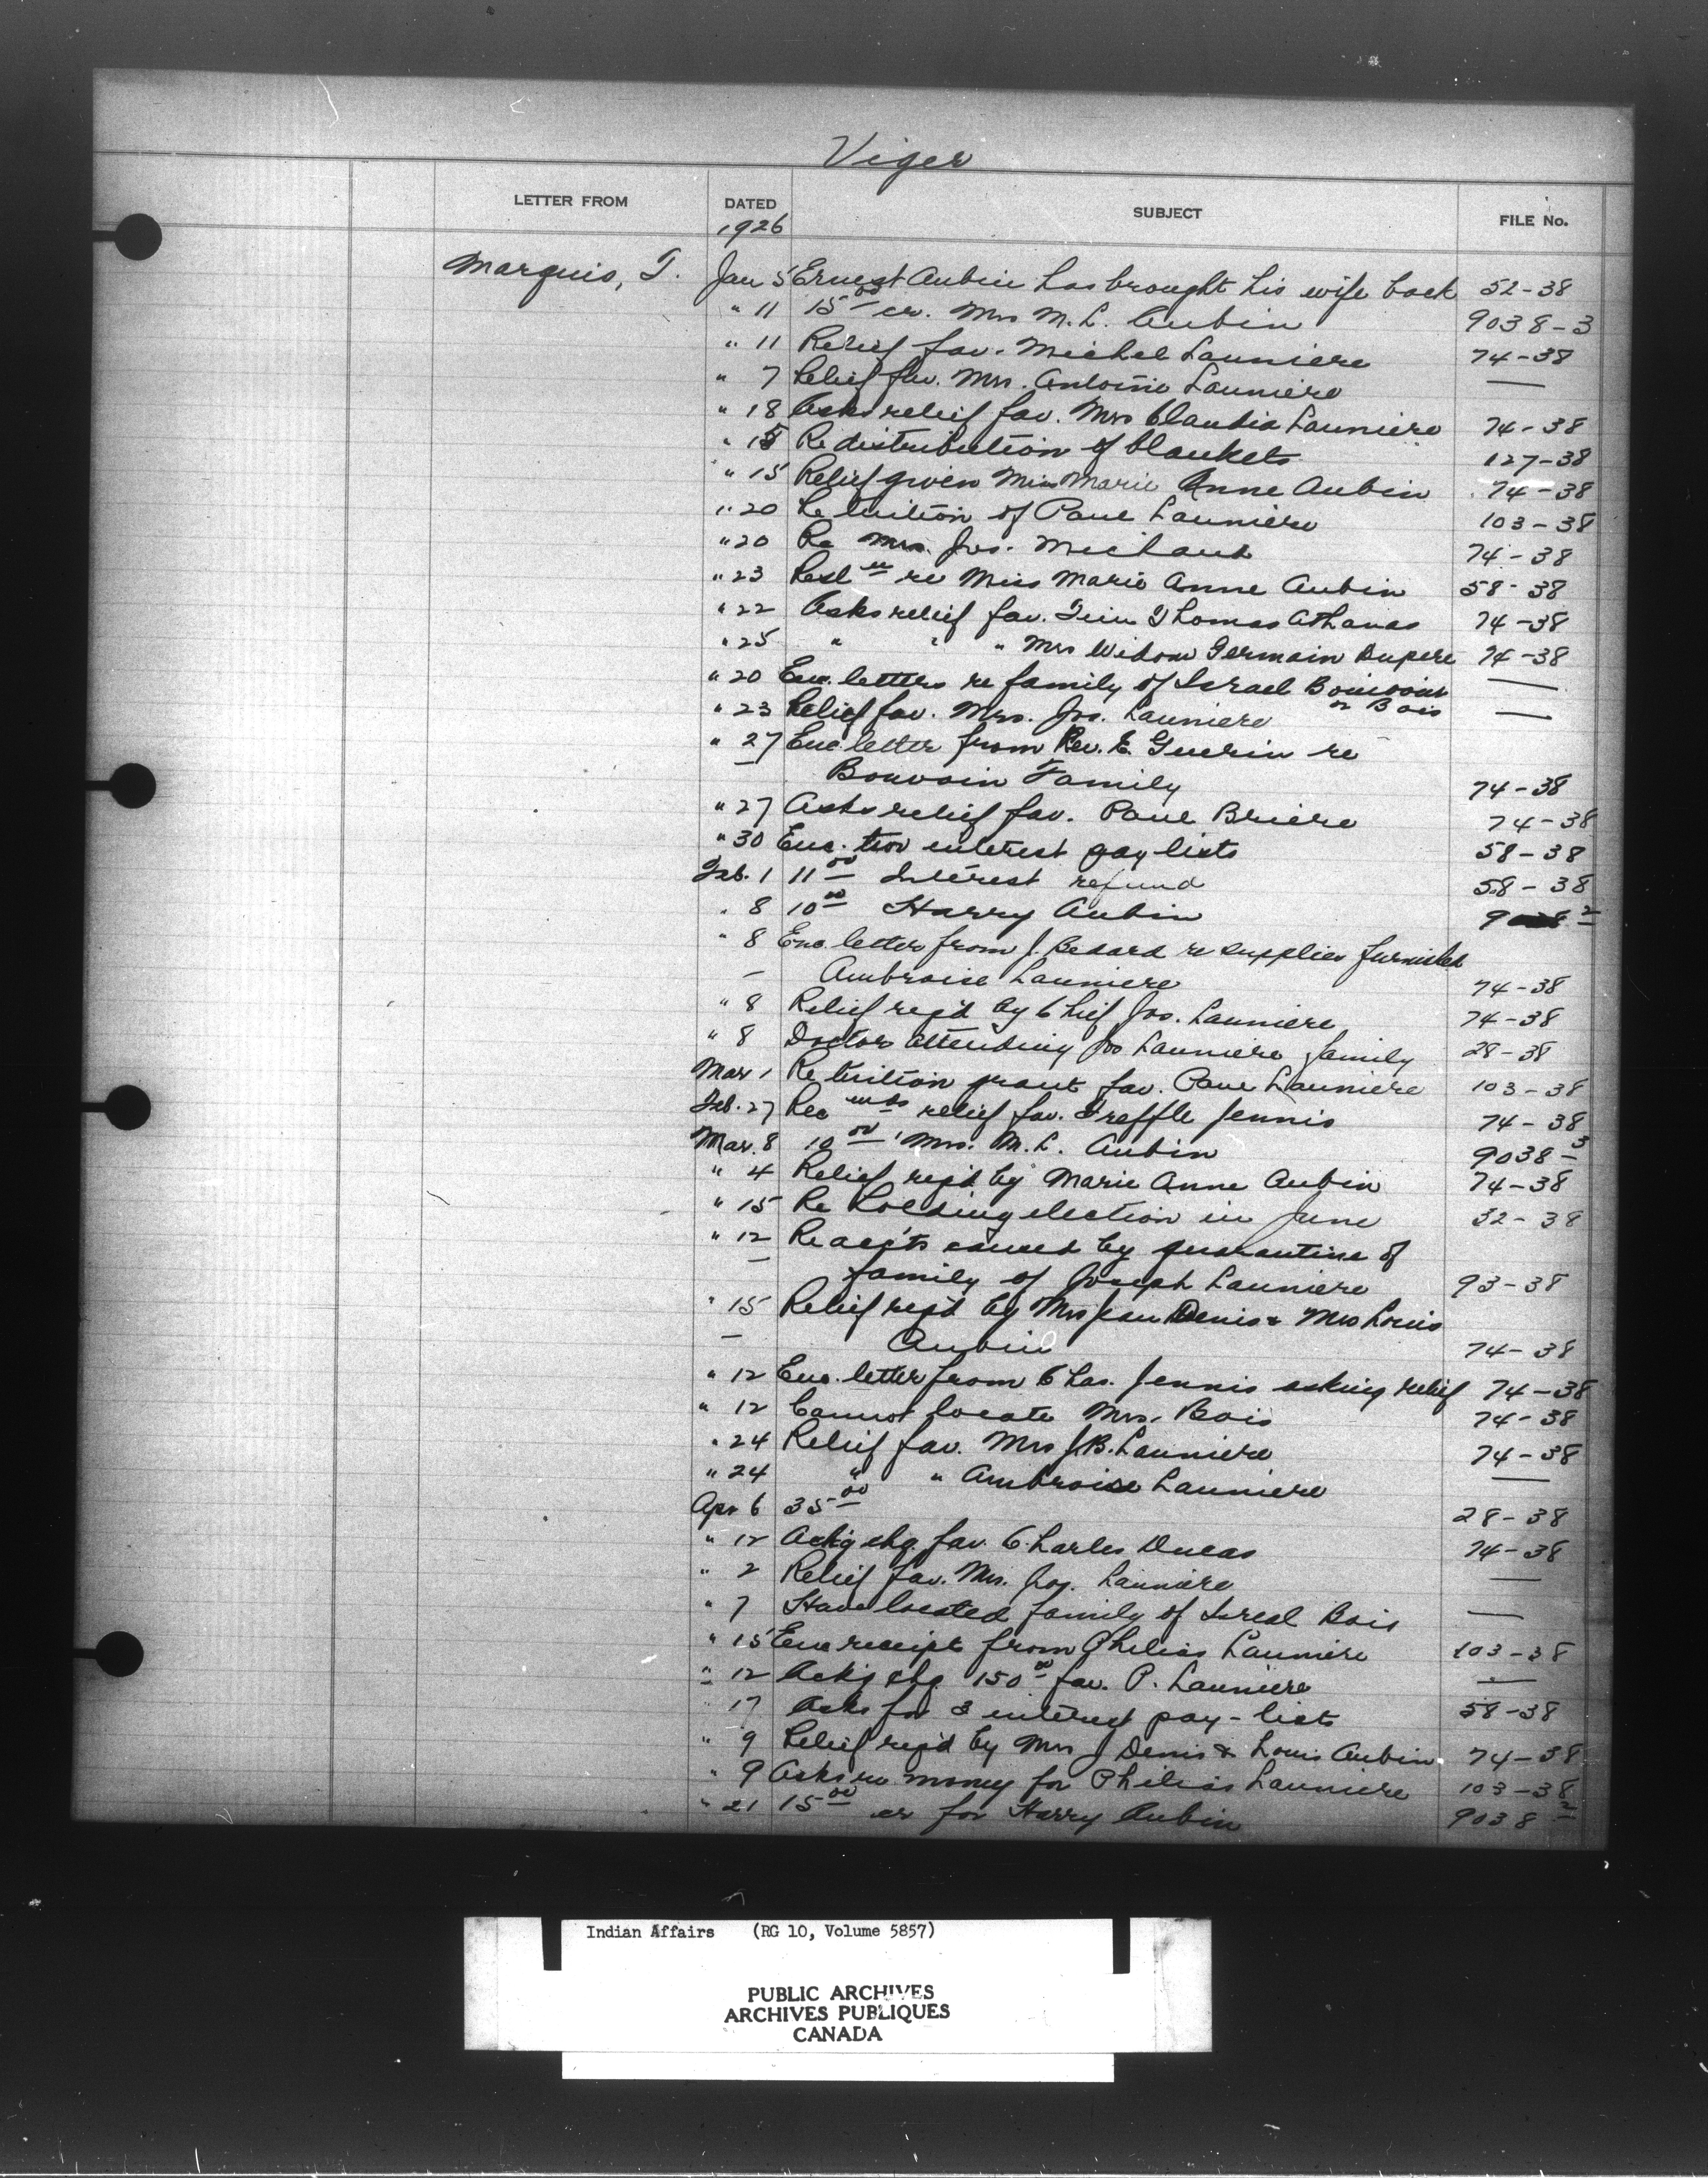 Viger
LETTER FROM DATED SUBJECT FILE No.
1926
Marquis, T. Jan 5 Ernest Aubin has brought his wife back 52-38
" 11 15 00 cr. Mrs M. L. Aubin 9038-3
" 11 Relief fav. Michel Launiere 74-38
" 7 Relief fav. Mrs. Antoine Launiere —
" 18 Asks relief fav. Mrs Claudia Launiere 74-38
" 15 Re distribution of blankets 127-38
" 15 Relief given Miss Marie Anne Aubin 74-38
" 20 Re tuition of Paul Launiere 103-38
" 20 Re Mrs. Jos. Michaud 74-38
" 23 re Miss Marie Anne Aubin 58-38
" 22 Asks relief fav. Thomas Athanas 74-38
" 25 " " " Mrs Widow Germain Dupere 74-38
" 20 Enc. letters re family of Israel —
or Bois
" 23 Relief fav. Mrs. Jos. Launiere —
" 27 Enc. letter from Rev. E. Guerin re
Bouvoin Family 74-38
" 27 Asks relief fav. Paul Briere 74-38
" 30 Enc. two interest pay lists 58-38
Feb. 1 11 00 Interest refund 58-38
" 8 10 00 Harry Aubin
" 8 Enc. letter from J. Bedard re supplies furnished
— Ambroise Launiere 74-38
" 8 Relief req'd by Chief Jos. Launiere 74-38
" 8 Doctor attending Jos Launiere family 28-38
Mar 1 Re tuition grant fav. Paul Launiere 103-38
Feb. 27 Rec mds relief fav. Treffle Jennis 74-38
Mar. 8 10 00 Mrs. M. L. Aubin 9038-3
" 4 Relief req'd by Marie Anne Aubin 74-38
" 15 Re holding election in June 32-38
" 12 Re acc'ts caused by quarantine of
— family of Joseph Launiere 93-38
" 15 Relief req'd by Mrs Jean Denis & Mrs Louis
— Aubin 74-38
" 12 Enc. letter from Chas. Jennis asking relief 74-38
" 12 Cannot locate Mrs. Bois 74-38
" 24 Relief fav. Mrs J.B. Launiere 74-38
" 24 " " Ambroise Launiere —
Apr 6 35 00 28-38
" 12 Ackg chq. fav. Charles Ducas 74-38
" 2 Relief fav. Mrs. Jos. Launiere —
" 7 Have located family of Isreal Bois —
" 15 Enc receipt from Philias Launiere 103-38
" 12 Ackg chq 150 00 fav. P. Launiere —
17 Asks for 3 interest pay-lists 58-38
" 9 Relief req'd by Mrs J Denis & Louis Aubin 74-38
" 9 Asks re money for Philias Launiere 103-38
" 21 15 00 cr for Harry Aubin 9038 2
Indian Affairs (RG 10, Volume 5857)
PUBLIC ARCHIVES
ARCHIVES PUBLIQUES
CANADA